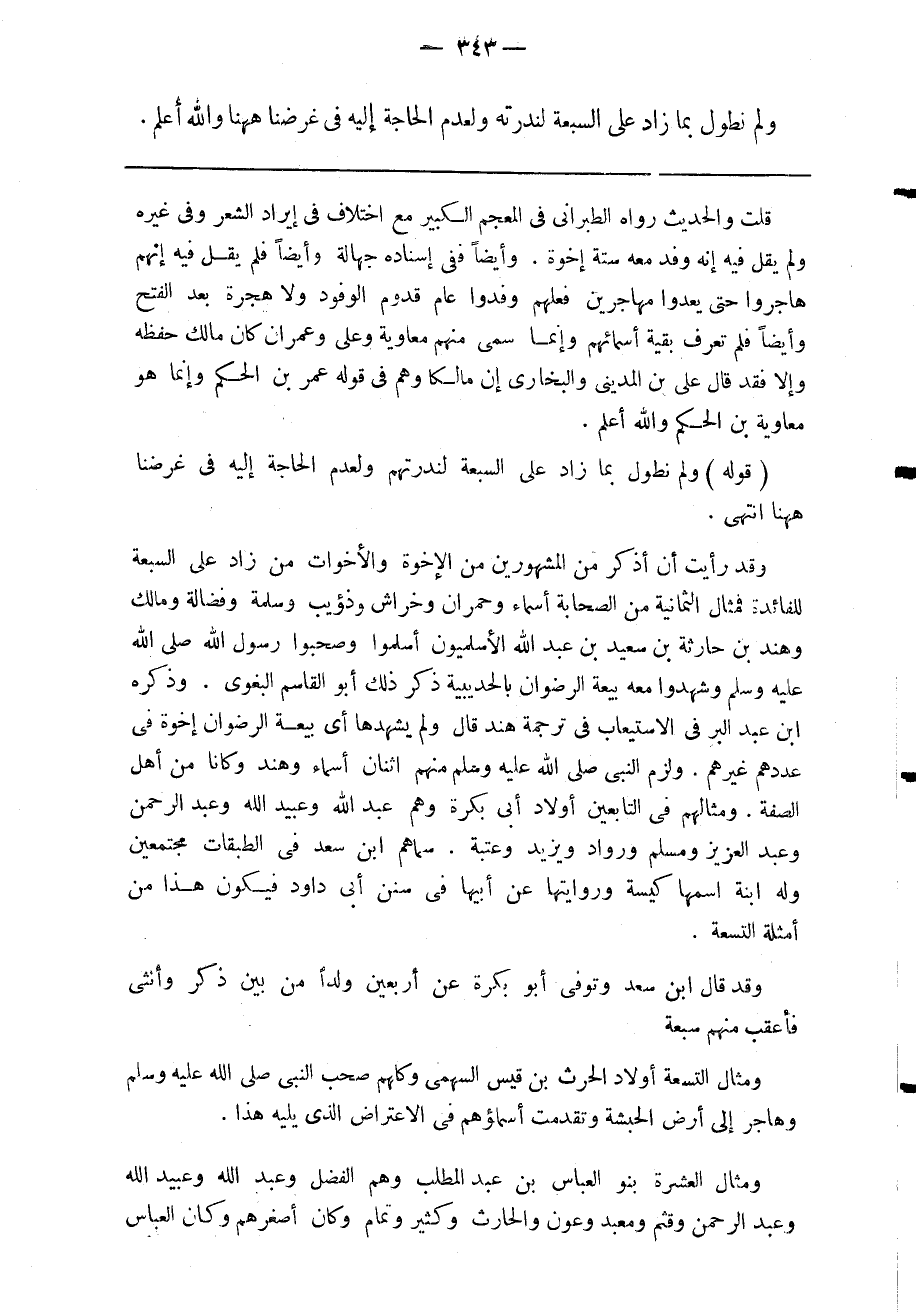 — ٣٤٣ —
ولم نطول بما زاد على السبعة لندرته ولعدم الحاجة إليه فى غرضنا ههنا والله أعلم .
قلت والحديث رواه الطبرانى فى المعجم الكبير مع اختلاف فى إيراد الشعر وفى غيره
ولم يقل فيه إنه وفد معه ستة إخوة . وأيضاً ففى إسناده جهالة وأيضاً فلم يقل فيه إنهم
هاجروا حتى يعدوا مهاجرين فعلهم وفدوا عام قدوم الوفود ولا هجرة بعد الفتح
وأيضاً فلم تعرف بقية أسمائهم وإنما سمى منهم معاوية وعلى وعمران كان مالك حفظه
وإلا فقد قال على بن المدينى والبخارى إن مالكا وهم فى قوله عمر بن الحكم وإنما هو
معاوية بن الحكم والله أعلم .
( قوله ) ولم نطول بما زاد على السبعة لندرتهم ولعدم الحاجة إليه فى غرضنا
ههنا انتهى .
وقد رأيت أن أذكر من المشهورين من الإخوة والأخوات من زاد على السبعة
للفائدة فمثال الثمانية من الصحابة أسماء وحمران وخراش وذؤيب وسلمة وفضالة ومالك
وهند بن حارثة بن سعيد بن عبد الله الأسلميون أسلموا وصحبوا رسول الله صلى الله
عليه وسلم وشهدوا معه بيعة الرضوان بالحديبية ذكر ذلك أبو القاسم البغوى . وذكره
ابن عبد البر فى الاستيعاب فى ترجمة هند قال ولم يشهدها أى بيعة الرضوان إخوة فى
عددهم غيرهم . ولزم النبى صلى الله عليه وسلم منهم اثنان أسماء وهند وكانا من أهل
الصفة . ومثالهم فى التابعين أولاد أبى بكرة وهم عبد الله وعبيد الله وعبد الرحمن
وعبد العزيز ومسلم ورواد ويزيد وعتبة . سماهم ابن سعد فى الطبقات مجتمعين
وله ابنة اسمها كيسة وروايتها عن أبيها فى سنن أبى داود فيكون هذا من
أمثلة التسعة .
وقد قال ابن سعد وتوفى أبو بكرة عن أربعين ولداً من بين ذكر وأنثى
فأعقب منهم سبعة
ومثال التسعة أولاد الحرث بن قيس السهمى وكلهم صحب النبى صلى الله عليه وسلم
وهاجر إلى أرض الحبشة وتقدمت أسماؤهم فى الاعتراض الذى يليه هذا .
ومثال العشرة بنو العباس بن عبد المطلب وهم الفضل وعبد الله وعبيد الله
وعبد الرحمن وقثم ومعبد وعون والحارث وكثير وتمام وكان أصغرهم وكان العباس